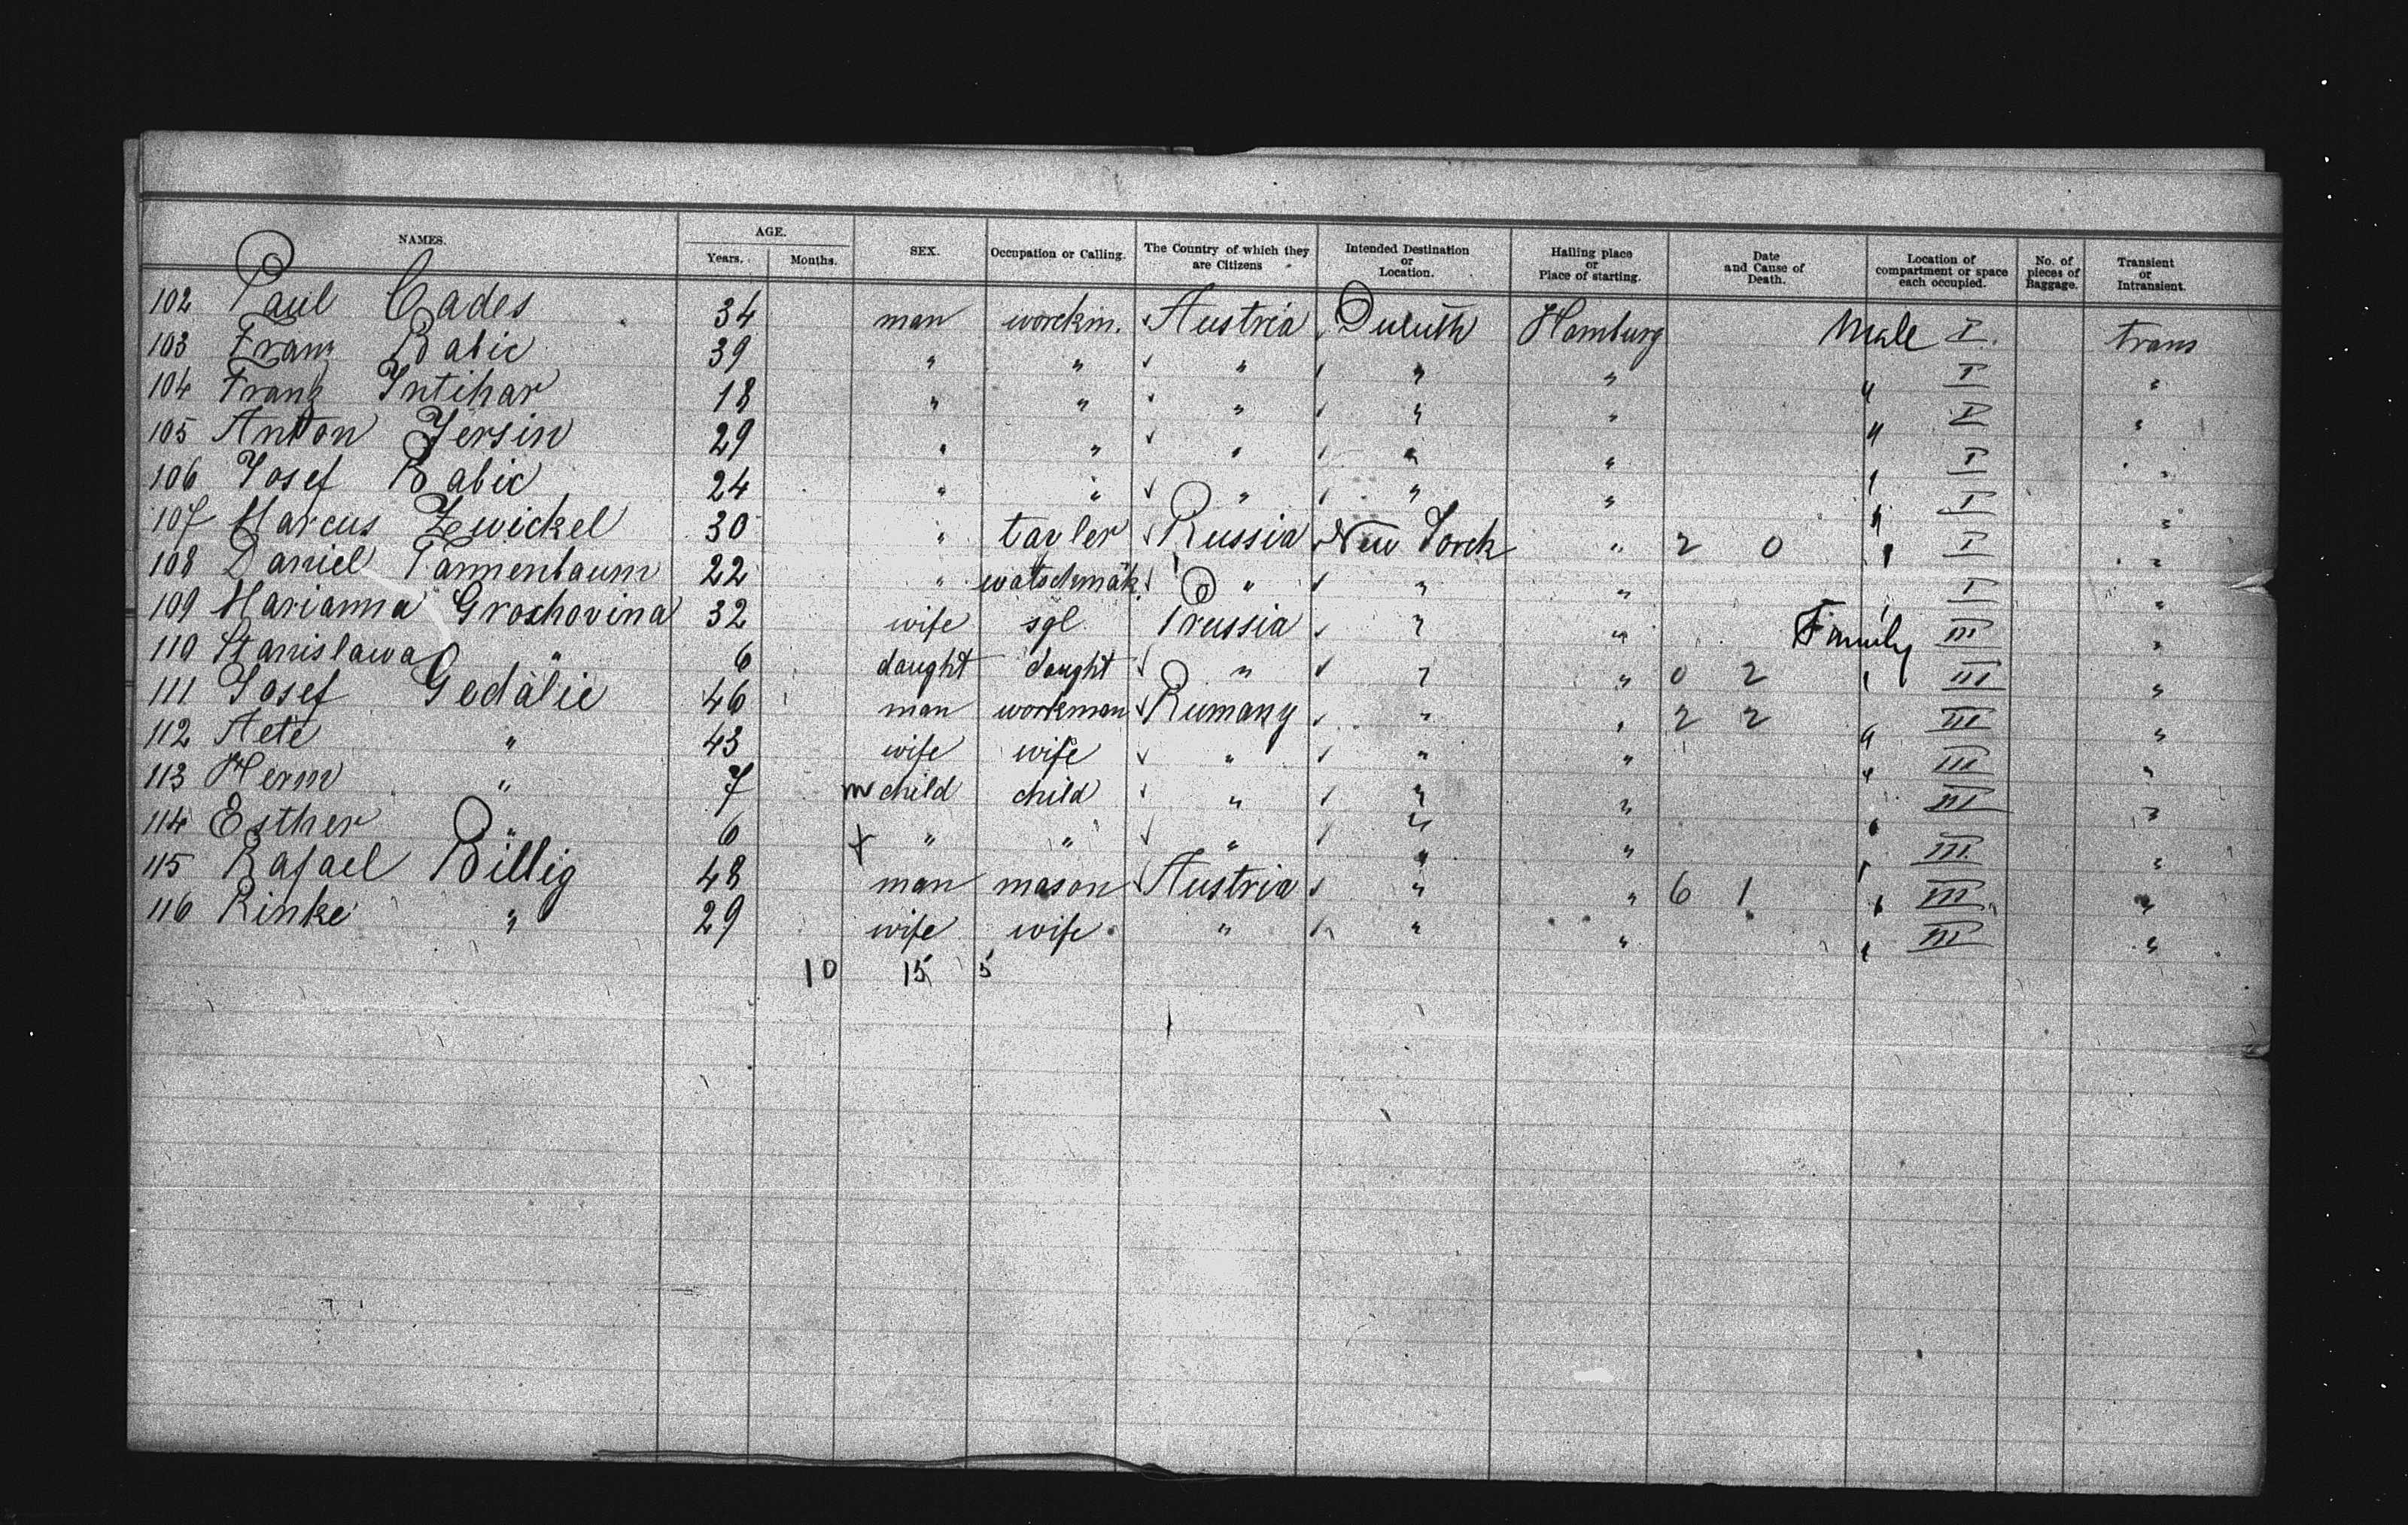 NAMES. AGE. SEX. Occupation or Calling. The Country of which they are Citizens Intended Destination or Location. Hailing place or Place of starting. Date and Cause of Death. Location of compartment or space each occupied. No. of pieces of Baggage. Transient or Intransient.
Years. Months.
102 Paul Cades 34 man workin. Austria Duluth Hamburg Male I. trans
103 Franz Babic 39 " " " " " " I "
104 Franz Intihar 18 " " " " " " I "
105 Anton Jersin 29 " " " " " " I "
106 Josef Babic 24 " " " " " " I "
107 Marcus Zwickel 30 " tayler Russia New Yorck " 2 0 " I "
108 Daniel Tannenbaum 22 " watschmäk. " " " " I "
109 Marianna Groshovina 32 wife sgl Prussia " " Family III "
110 Stanislawa " 6 daught daught " " " 0 2 " III "
111 Josef Gedalie 46 man workman Rumany " " 2 2 " III "
112 " 43 wife wife " " " " III "
113 Herm " 7 m child child " " " " III "
114 Esther " 6 f " " " " " " III "
115 Rafael Billig 48 man mason Austria " " 6 1 " III "
116 Rinke " 29 wife wife " " " " III "
10 15 5